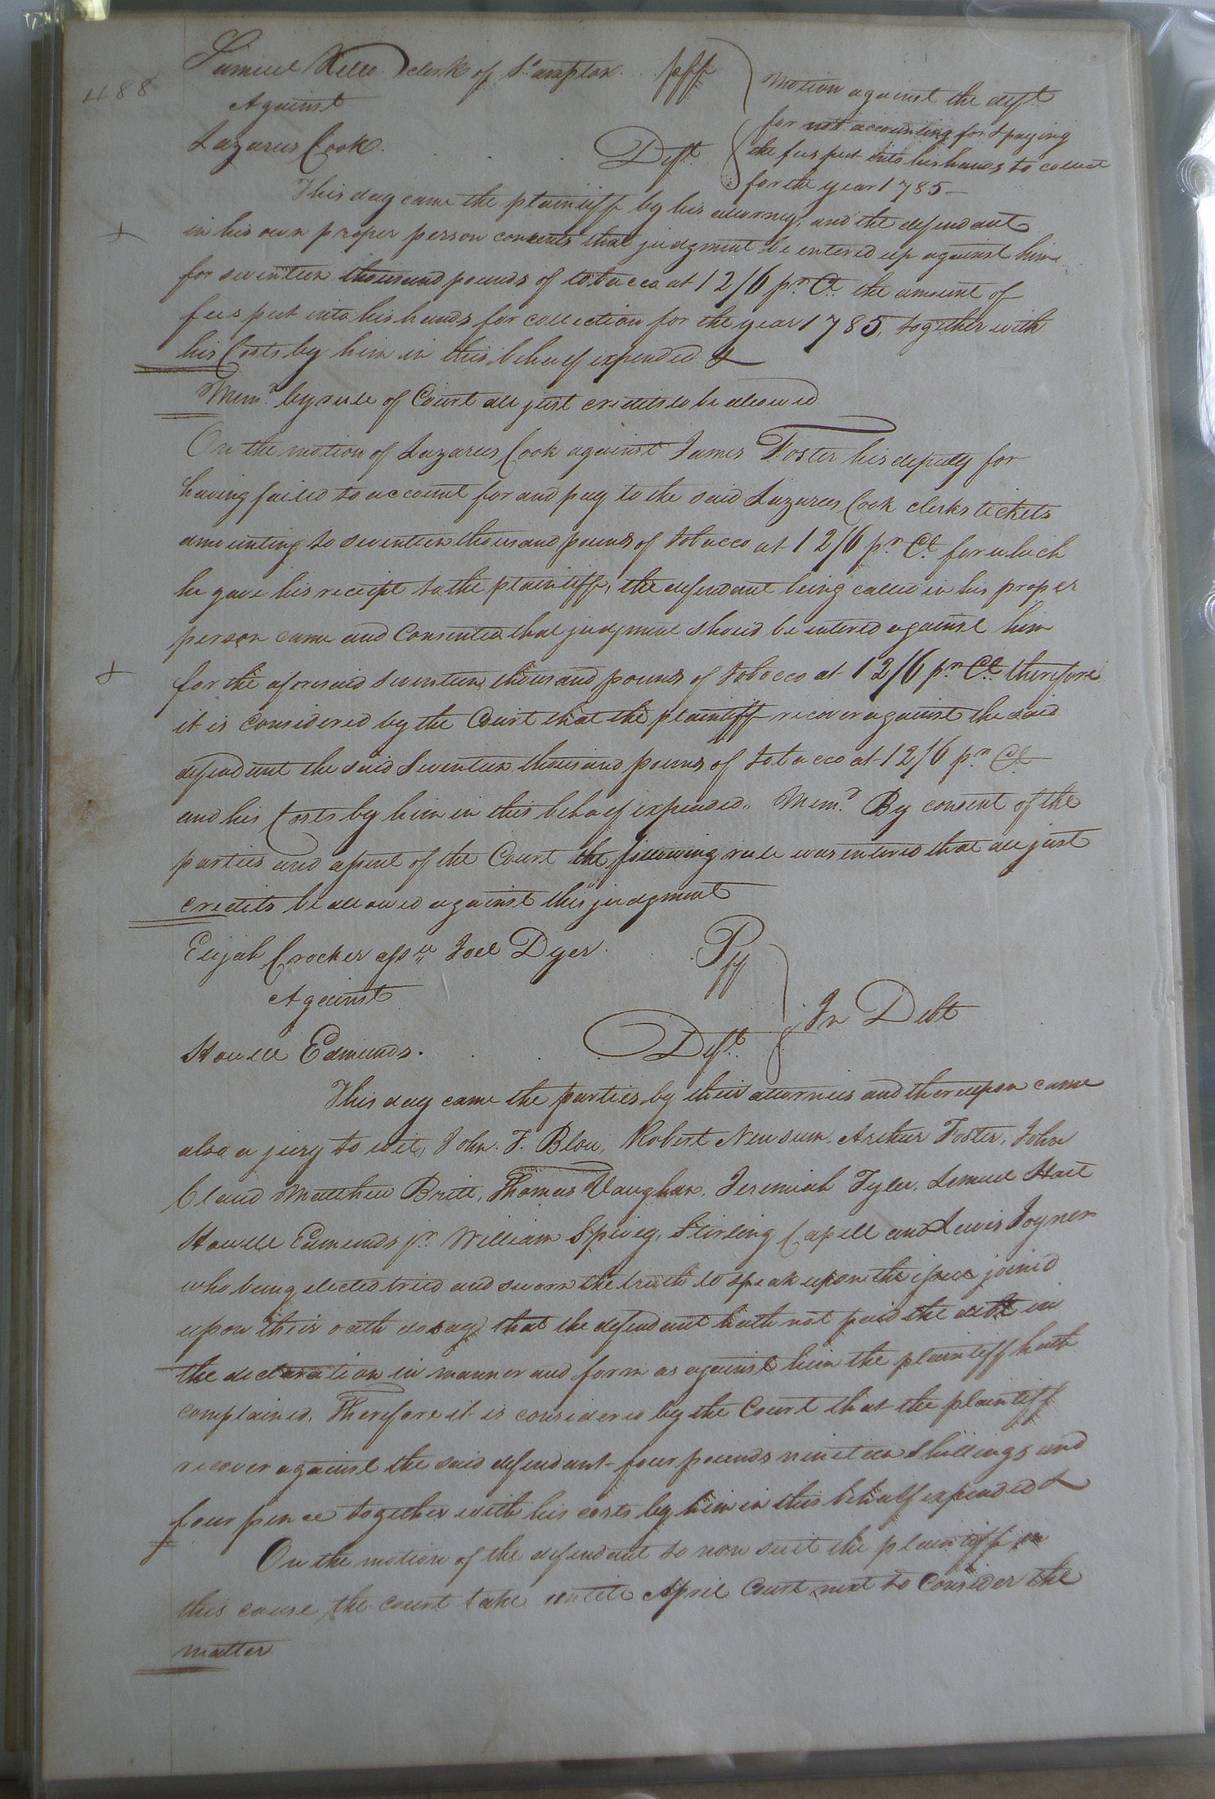 488
Samuel Kello clerk of S.ampton. plff
Motion against the deft
Against
for not accounting for & paying
Lazarus Cook. Deft.
the fees put into his hands to collect
for the year 1785—
This day came the plaintiff by his attorney, and the defendant
in his own proper person consents that judgment be entered up against him
for seventeen thousand pounds of tobacco at 12/6 pr Ct. the amount of
fees put into his hands for collection for the year 1785, together with
his Costs by him in this behalf expended &
Memo. by rule of Court all just credits to be allowed
On the motion of Lazarus Cook against James Foster his deputy for
having failed to account for and pay to the said Lazarus Cook clerks tickets
amounting to seventeen thousand pounds of tobacco at 12/6 pr Ct. for which
he gave his receipt to the plaintiff, the defendant being called in his proper
person came and consented that judgment should be entered against him
for the aforesaid seventeen thousand pounds of tobacco at 12/6 pr Ct. therefore
it is considered by the Court that the plaintiff recover against the said
defendant the said seventeen thousand pounds of tobacco at 12/6 pr Ct
and his Costs by him in this behalf expended. Memd. By consent of the
parties and assent of the Court the following rule was entered that all just
credits be allowed against this judgment
Elijah Crocker assee Joel Dyer. Plf
Against
In Debt
Howell Edmunds. Deft.
This day came the parties by their attornies and thereupon came
also a jury to wit, John. T. Blow, Robert Newsum, Arthur Foster, John
Claud Matthew Britt, Thomas Vaughan, Jeremiah Tyler, Lemuel Hart
Howell Edmunds jr. William Spivey, Stirling Capell and Lewis Joyner
who being elected tried and sworn the truth to speak upon the issue joined
upon their oath do say, that the defendant hath not paid the debt in
the declaration in manner and form as against him the plaintiff hath
complained. Therefore it is considered by the Court that the plaintiff
recover against the said defendant four pounds nineteen shillings and
four pence together with his costs by him in this behalf expended &
On the motion of the defendant to non suit the plaintiff in
this cause, the court take untill April Court next to consider the
matter